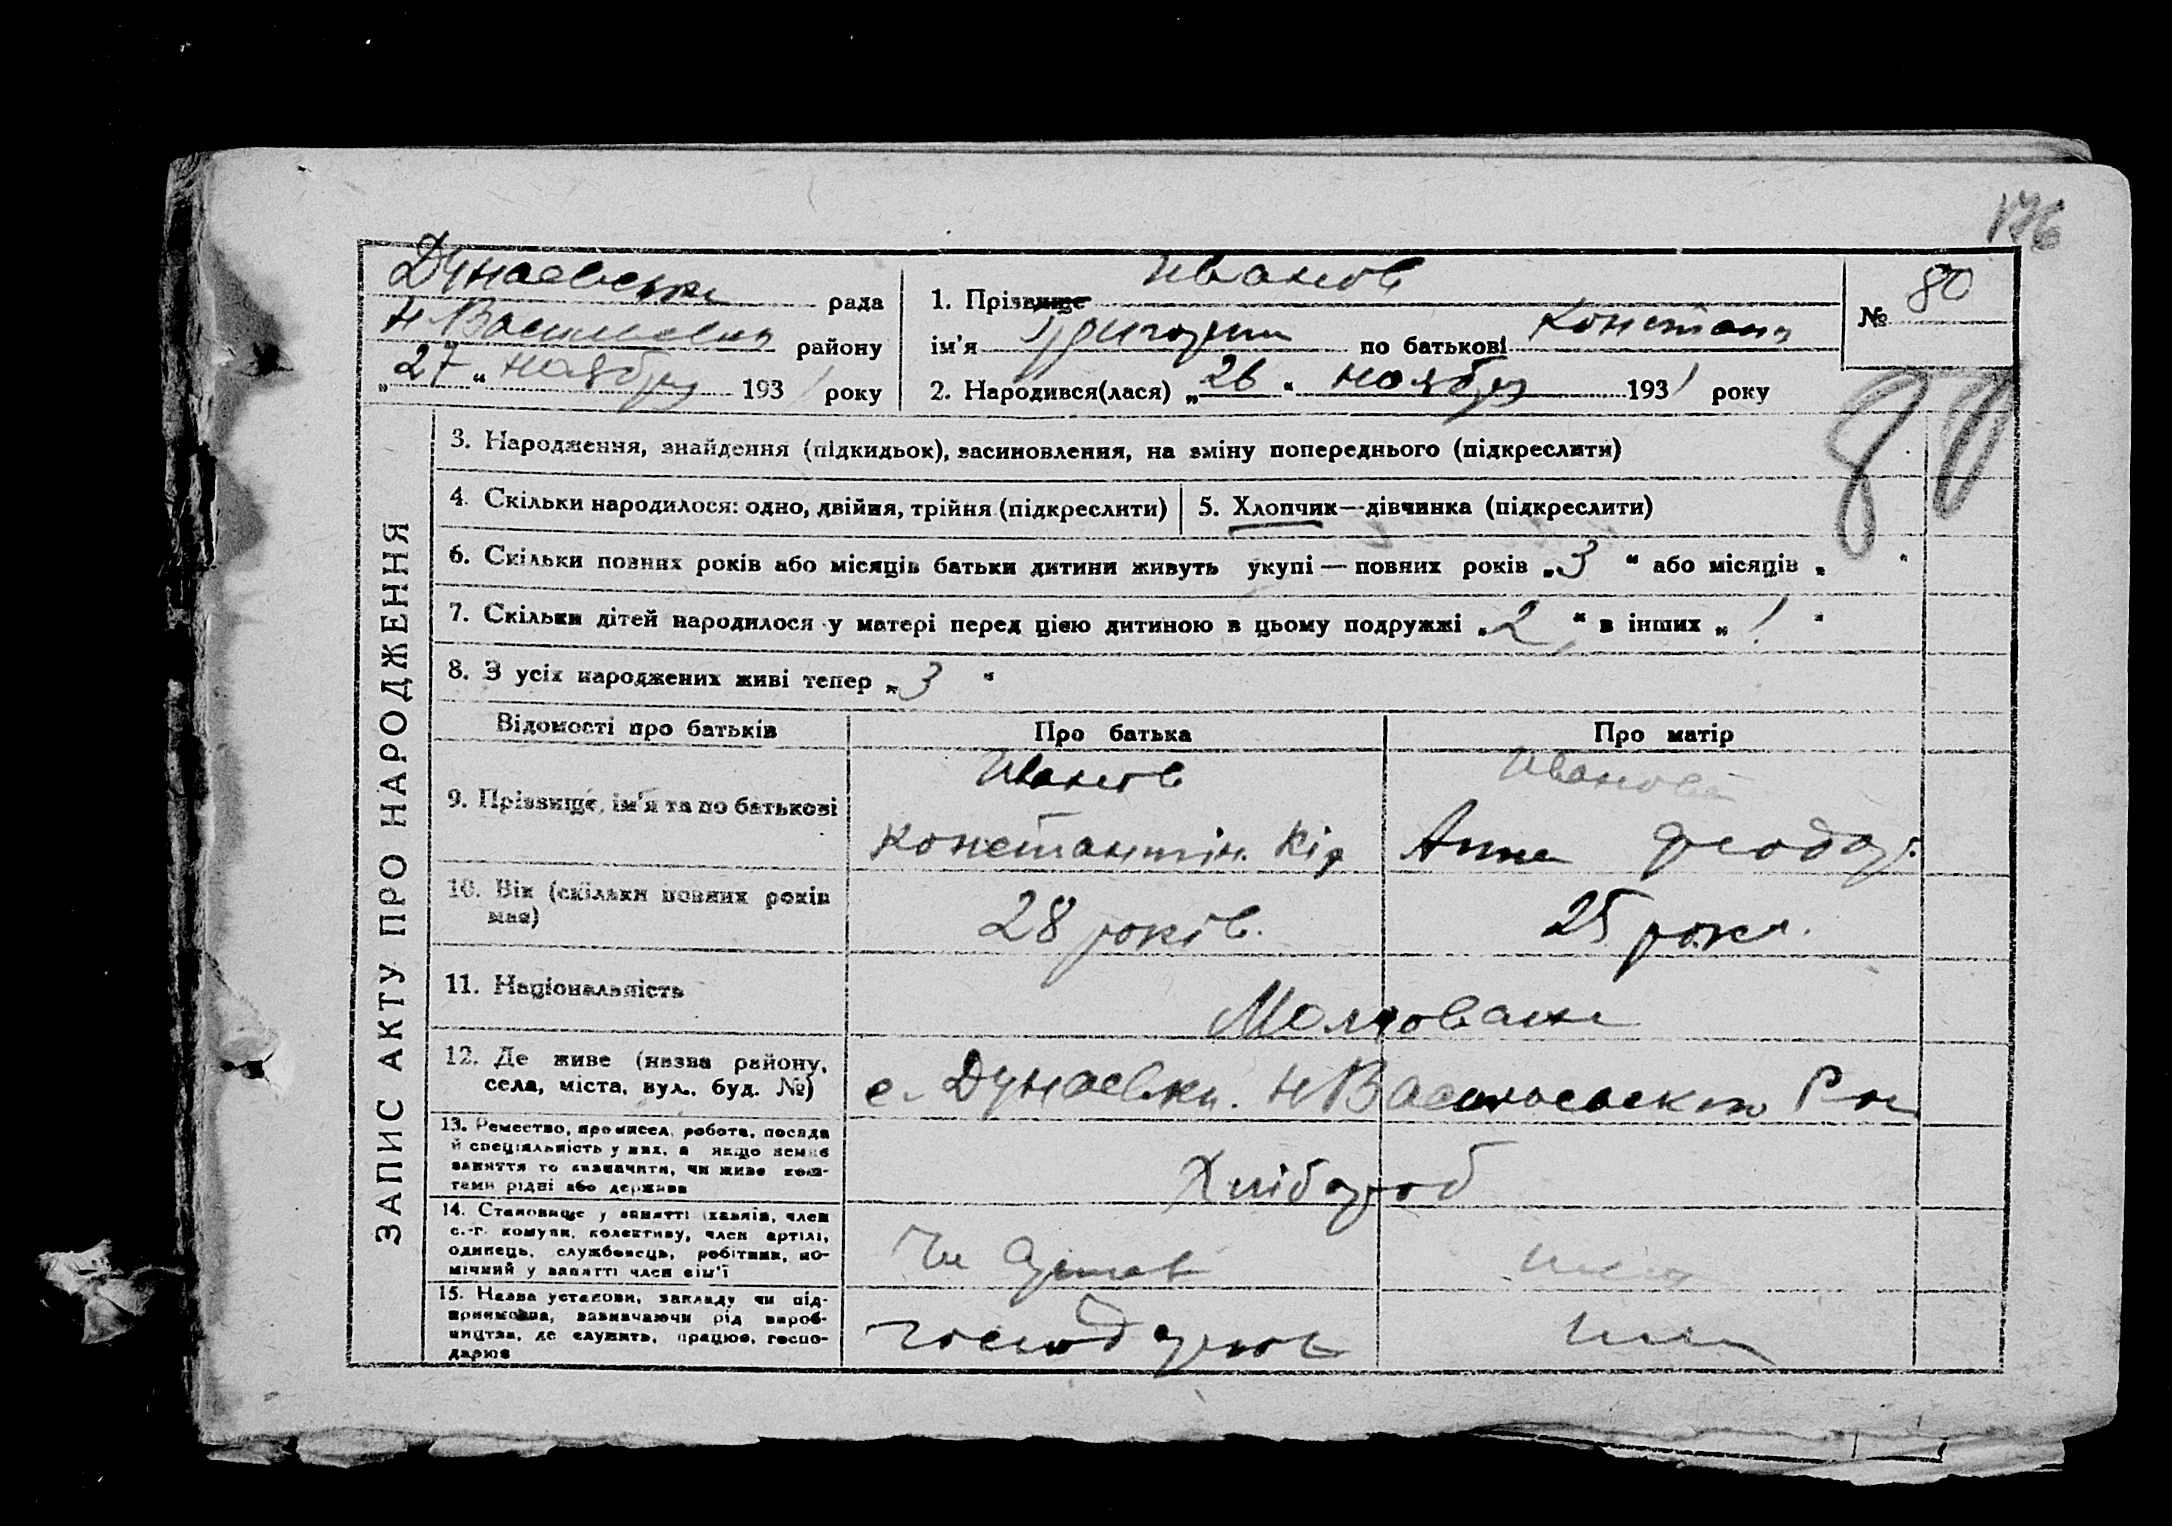 176
Дунаевська рада
Н Василевка району
„27“ ноября 1931 року
1. Прізвище Иванов
ім'я Григорий по батькові Констант
2. Народився(лася) „26“ ноября 1931 року
№ 80
80
ЗАПИС АКТУ ПРО НАРОДЖЕННЯ
3. Народження, знайдення (підкидьок), засиновлення, на зміну попереднього (підкреслити)
4. Скільки народилося: одно, двійня, трійня (підкреслити)
5. Хлопчик—дівчинка (підкреслити)
6. Скільки повних років або місяців батьки дитини живуть укупі — повних років „3“ або місяців „ “
7. Скільки дітей народилося у матері перед цією дитиною в цьому подружжі „2“ в інших „1“
8. З усіх народжених живі тепер „3“
Відомості про батьків
Про батька
Про матір
9. Прізвище, ім'я та по батькові
Иванов
Константін. Кір
Иванова
Анна Феодор.
10. Вік (скільки повних років
має)
28 років.
25 рокі.
11. Національність
Молдоване
12. Де живе (назва району,
села, міста, вул., буд. №)
с. Дунаевки. Н Василевського Рай
13. Ремество, промисел, робота, посада
й спеціяльність у них, а якщо немає
заняття то визначити, чи живе кош-
тами рідні або держави
Хлібороб
14. Становище у занятті (хазяїн, член
с.-г. комуни, колективу, член артілі,
одинець, службовець, робітник, по-
мічний у занятті член сім'ї
Чл
15. Назва установи, закладу чи під-
приємства, визначаючи рід вироб-
ництва, де служить, працює, госпо-
дарює